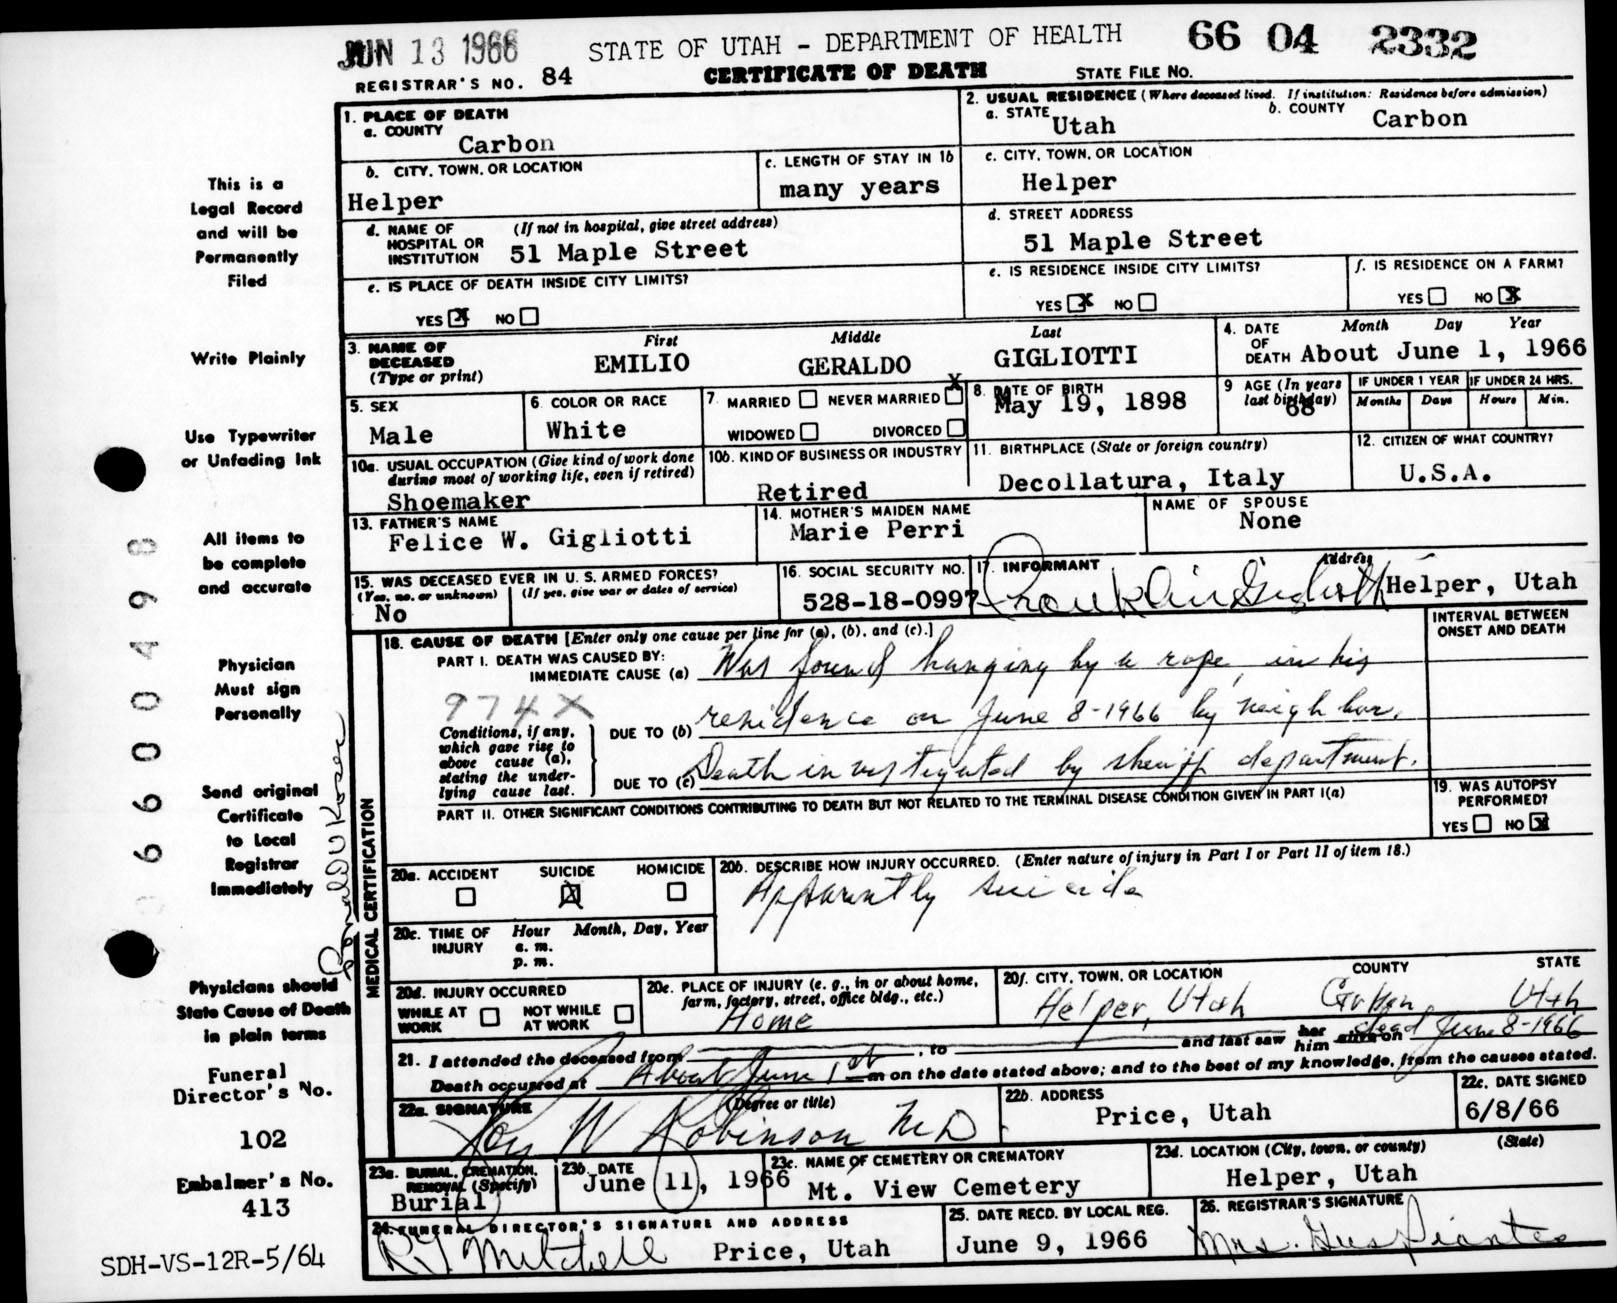 JUN 13 1966
STATE OF UTAH - DEPARTMENT OF HEALTH
66 04 2332
REGISTRAR'S NO. 84
CERTIFICATE OF DEATH
STATE FILE NO.
This is a
Legal Record
and will be
Permanently
Filed
Write Plainly
Use Typewriter
or Unfading Ink
All items to
be complete
and accurate
Physician
Must sign
Personally
Send original
Certificate
to Local
Registrar
Immediately
Physicians should
State Cause of Death
in plain terms
Funeral
Director's No.
102
Embalmer's No.
413
SDH-VS-12R-5/64
6600498
1. PLACE OF DEATH
a. COUNTY
Carbon
2. USUAL RESIDENCE (Where deceased lived. If institution: Residence before admission)
a. STATE Utah
b. COUNTY Carbon
b. CITY, TOWN, OR LOCATION
Helper
c. LENGTH OF STAY IN 1b
many years
c. CITY, TOWN, OR LOCATION
Helper
d. NAME OF HOSPITAL OR INSTITUTION
(If not in hospital, give street address)
51 Maple Street
d. STREET ADDRESS
51 Maple Street
e. IS PLACE OF DEATH INSIDE CITY LIMITS?
YES X NO
e. IS RESIDENCE INSIDE CITY LIMITS?
YES X NO
f. IS RESIDENCE ON A FARM?
YES NO X
3. NAME OF DECEASED (Type or print)
First Middle Last
EMILIO GERALDO GIGLIOTTI
4. DATE OF DEATH
Month Day Year
About June 1, 1966
5. SEX
Male
6. COLOR OR RACE
White
7. MARRIED NEVER MARRIED X
WIDOWED DIVORCED
8. DATE OF BIRTH
May 19, 1898
9 AGE (In years last birthday)
68
IF UNDER 1 YEAR
Months Days
IF UNDER 24 HRS.
Hours Min.
10a. USUAL OCCUPATION (Give kind of work done during most of working life, even if retired)
Shoemaker
10b. KIND OF BUSINESS OR INDUSTRY
Retired
11. BIRTHPLACE (State or foreign country)
Decollatura, Italy
12. CITIZEN OF WHAT COUNTRY?
U.S.A.
13. FATHER'S NAME
Felice W. Gigliotti
14. MOTHER'S MAIDEN NAME
Marie Perri
NAME OF SPOUSE
None
15. WAS DECEASED EVER IN U. S. ARMED FORCES?
(Yes, no, or unknown) (If yes, give war or dates of service)
No
16. SOCIAL SECURITY NO.
528-18-0997
17. INFORMANT Address
Franklin Gigliotti Helper, Utah
MEDICAL CERTIFICATION
18. CAUSE OF DEATH [Enter only one cause per line for (a), (b), and (c).]
INTERVAL BETWEEN ONSET AND DEATH
PART I. DEATH WAS CAUSED BY:
IMMEDIATE CAUSE (a) Was found hanging by a rope, in his
974X
DUE TO (b) residence on June 8-1966 by neighbor.
Conditions, if any, which gave rise to above cause (a), stating the underlying cause last.
DUE TO (c) Death investigated by sheriff department.
PART II. OTHER SIGNIFICANT CONDITIONS CONTRIBUTING TO DEATH BUT NOT RELATED TO THE TERMINAL DISEASE CONDITION GIVEN IN PART I(a)
19. WAS AUTOPSY PERFORMED?
YES NO X
20a. ACCIDENT SUICIDE HOMICIDE
X
20b. DESCRIBE HOW INJURY OCCURRED. (Enter nature of injury in Part I or Part II of item 18.)
Apparently suicide
20c. TIME OF INJURY
Hour Month, Day, Year
a. m.
p. m.
20d. INJURY OCCURRED
WHILE AT WORK NOT WHILE AT WORK
20e. PLACE OF INJURY (e. g., in or about home, farm, factory, street, office bldg., etc.)
Home
20f. CITY, TOWN, OR LOCATION COUNTY STATE
Helper, Utah Carbon Utah
21. I attended the deceased from , to and last saw her him alive on dead June 8-1966
Death occurred at About June 1st m on the date stated above; and to the best of my knowledge, from the causes stated.
22a. SIGNATURE (Degree or title)
Roy W Robinson MD.
22b. ADDRESS
Price, Utah
22c. DATE SIGNED
6/8/66
23a. BURIAL, CREMATION, REMOVAL (Specify)
Burial
23b. DATE
June 11, 1966
23c. NAME OF CEMETERY OR CREMATORY
Mt. View Cemetery
23d. LOCATION (City, town, or county) (State)
Helper, Utah
24. FUNERAL DIRECTOR'S SIGNATURE AND ADDRESS
Mitchell Price, Utah
25. DATE RECD. BY LOCAL REG.
June 9, 1966
26. REGISTRAR'S SIGNATURE
Mrs. Gus